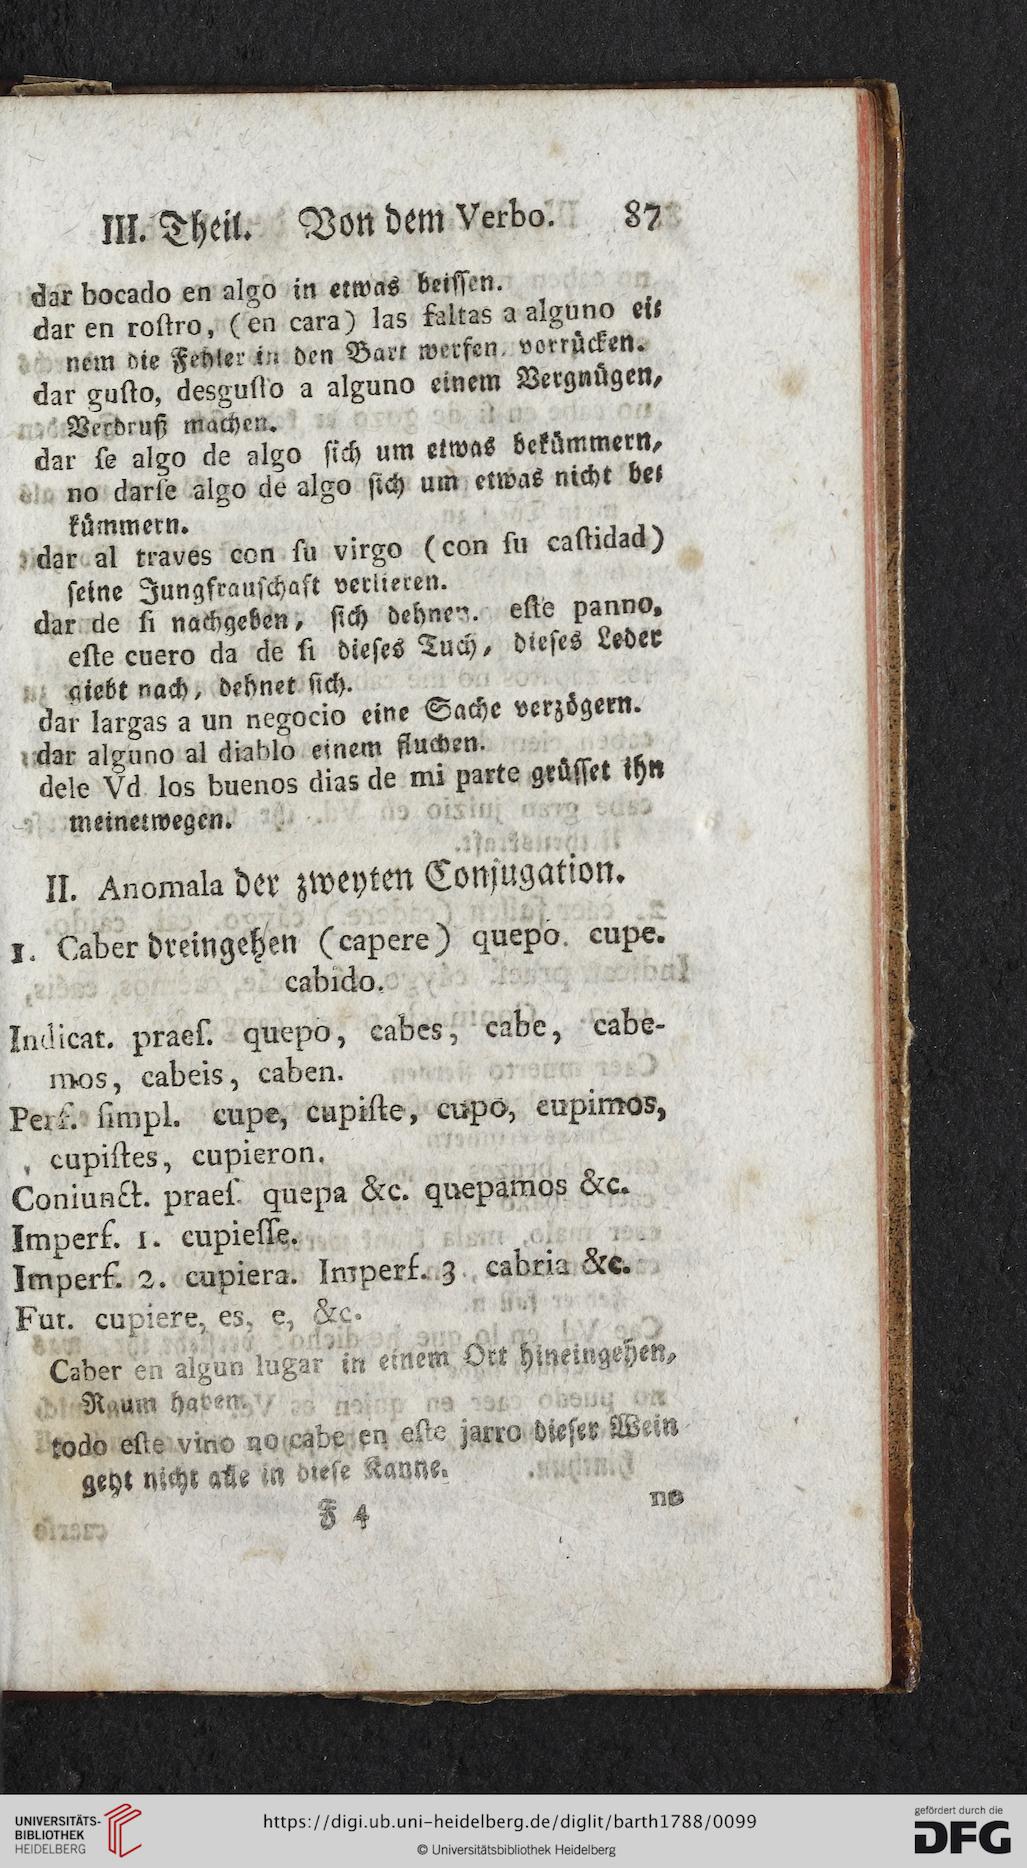 III. Theil. Von dem Verbo. 87
dar bocado en algo in etwas beissen.
dar en roſtro, (en cara) las faltas a alguno ei⸗
nem die Fehler in den Bart werfen, vorrücken.
dar guſto, desguſto a alguno einem Vergnügen,
Verdruß machen.
dar ſe algo de algo ſich um etwas bekümmern,
no darſe algo de algo ſich um etwas nicht be⸗
kümmern.
dar al traves con ſu virgo (con ſu caſtidad)
ſeine Jungfrauſchaft verlieren.
dar de ſi nachgeben, ſich dehnen. eſte panno,
eſte cuero da de ſi dieſes Tuch, dieſes Leder
giebt nach, dehnet ſich.
dar largas a un negocio eine Sache verzögern.
dar alguno al diablo einem fluchen.
dele Vd los buenos dias de mi parte grüſſet ihn
meinetwegen.
II. Anomala der zweyten Conjugation.
1. Caber dreingehen (capere) quepo. cupe.
cabido.
Indicat. praeſ. quepo, cabes, cabe, cabe-
mos, cabeis, caben.
Perf. ſimpl. cupe, cupiſte, cupo, cupimos,
cupiſtes, cupieron.
Coniunct. praeſ. quepa &c. quepamos &c.
Imperf. 1. cupieſſe.
Imperf. 2. cupiera. Imperf. 3 cabria &c.
Fut. cupiere, es, e, &c.
Caber en algun lugar in einem Ort hineingehen,
Raum haben.
todo eſte vino no cabe en eſte jarro dieſer Wein
geht nicht alle in dieſe Kanne.
F 4 no
UNIVERSITÄTS-
BIBLIOTHEK
HEIDELBERG
https://digi.ub.uni-heidelberg.de/diglit/barth1788/0099
© Universitätsbibliothek Heidelberg
gefördert durch die
DFG